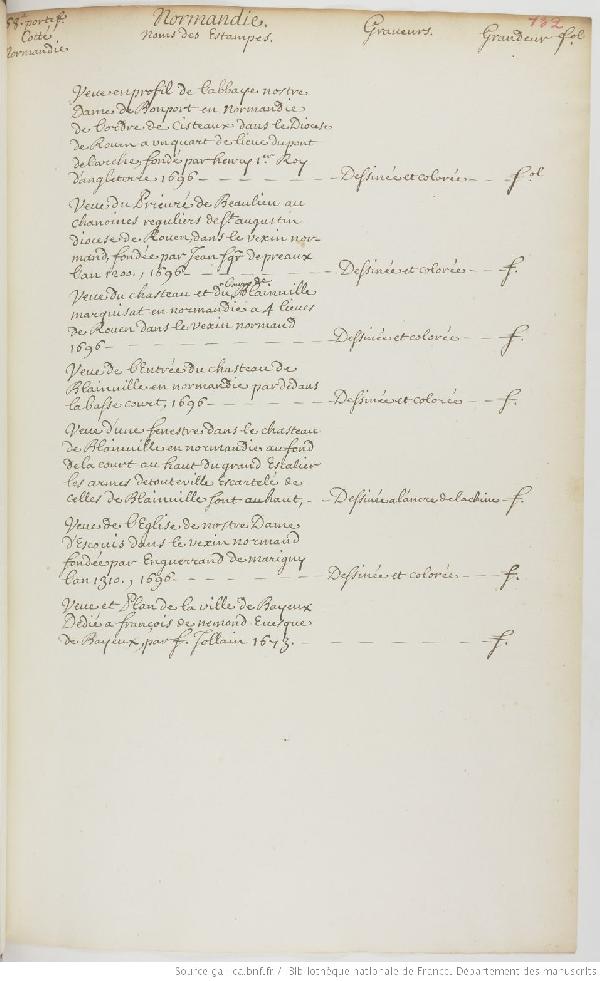 58e. portef.
Cotté
Normandie
Normandie.
Noms des Estampes.
Graveurs.
Grandeur fol.
132
Veue en profil de l'abbaye nostre
Dame de Bonport en Normandie
de l'ordre de Cisteaux dans le Diocese
de Rouen a un quart de lieue du pont
de larche, fondé par henry 1er Roy
d'angleterre 1696 - - - - - Dessinée et colorée - - fol
Veue du Prieuré de Beaulieu au
chanoines reguliers de st. augustin
diocese de Rouen, dans le vexin nor-
mand, fondée par Jean sgr. de preaux
lan 1200, 1696 - - - - - Dessinée et colorée - - f.
Veue du chasteau et du Bourg de Blainville
marquisat en normandie a 4 lieues
de Rouen dans le vexin normand
1696 - - - - - - - - Dessinée et colorée - - f.
Veue de l'Entrée du chasteau de
Blainville en normandie par dedans
la basse court, 1696 - - - - Dessinée et colorée - - f.
Veue d'une fenestre dans le chasteau
de Blainville en normandie au fond
de la court au haut du grand Escalier
les armes detouteville Escartelé de
celles de Blainville sont au haut, - Dessinée a lancre de la chine - f.
Veue de l'Eglise de nostre Dame
d'Escouis dans le vexin normand
fondée par Enguerrand de marigny
lan 1310, 1696 - - - - - Dessinée et colorée - - f.
Veue et Plan de la ville de Bayeux
Dedié a françois de nemond Evesque
de Bayeux, par f. Jollain 1673. - - - - - - - f.
Source gallica.bnf.fr / Bibliothèque nationale de France. Département des manuscrits.